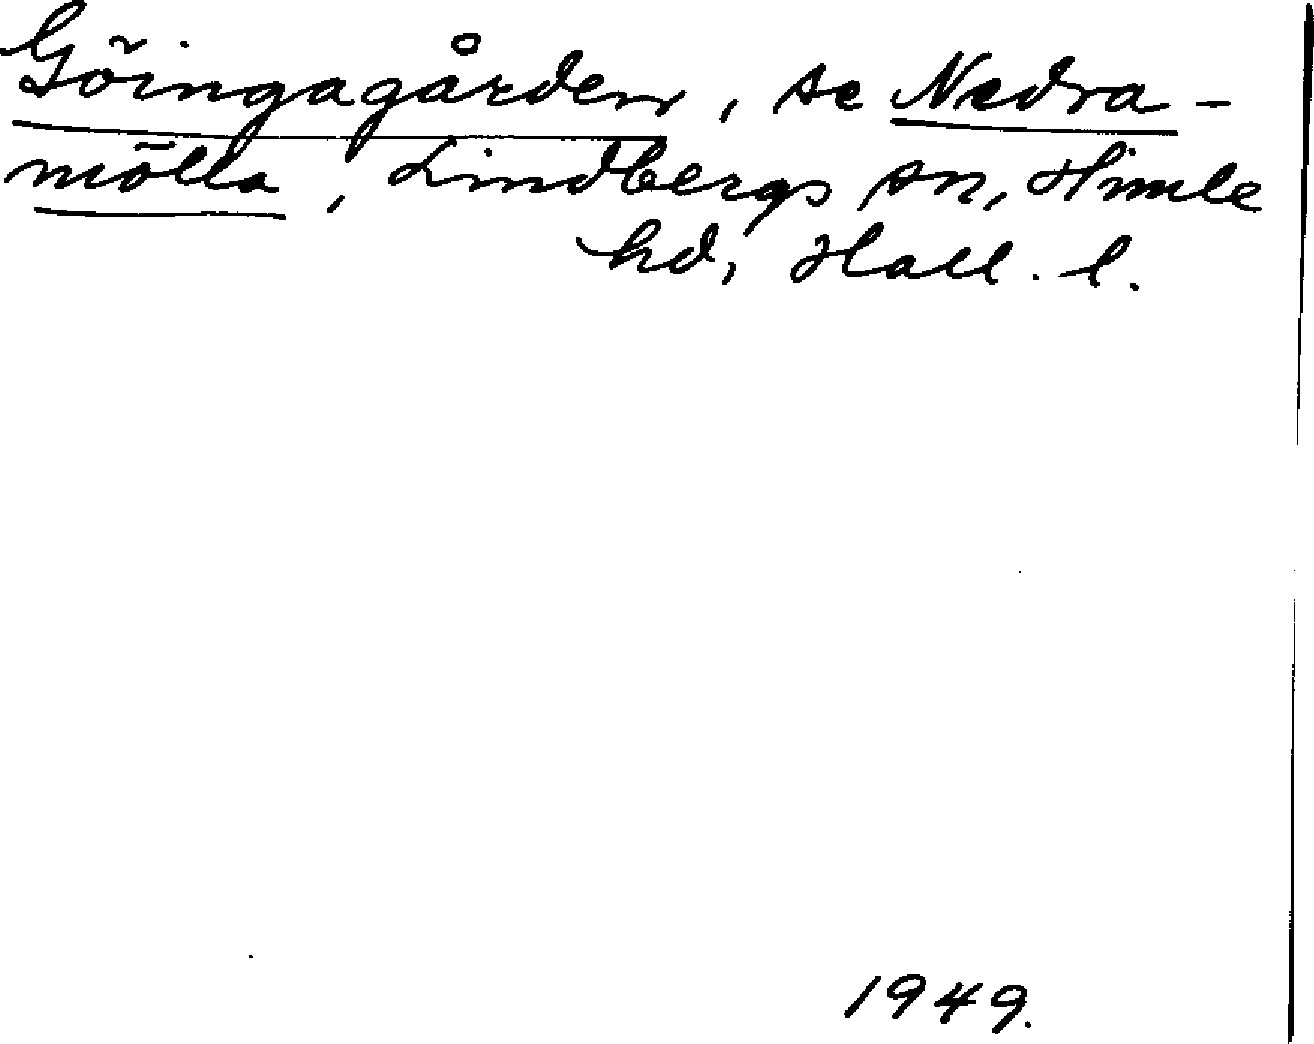 Göingagården, se Nedra-
mölla, Lindbergs sn, Himle
hd, Hall. l.
1949.